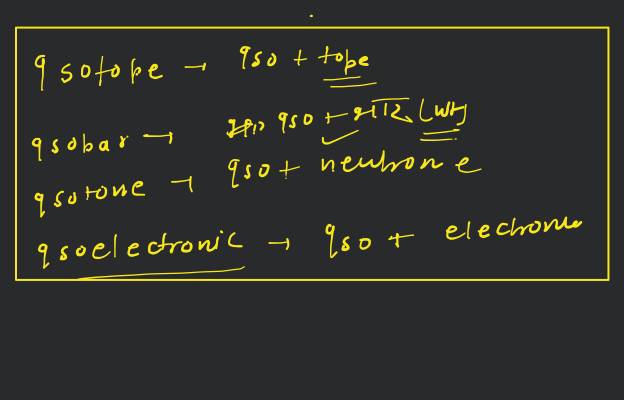 Isotope → Iso + tope
Isobar → Iso + भार (wt)
Isotone → Iso + neutron e
Isoelectronic → Iso + electronic